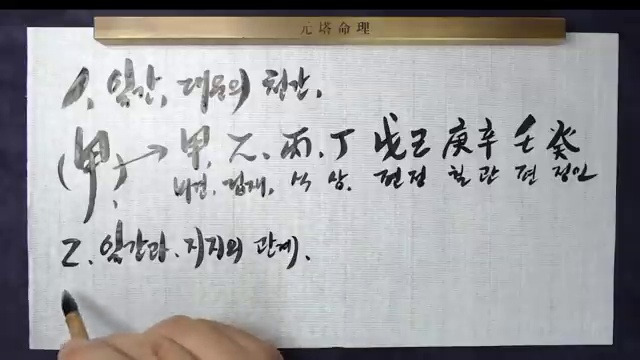 元塔命理
1. 일간, 대운의 천간.
(甲) → 甲, 乙, 丙, 丁 戊己 庚辛 壬癸
비견, 겁재, 식 상, 편정 칠관 편 정인
2. 일간과 지지의 관계.